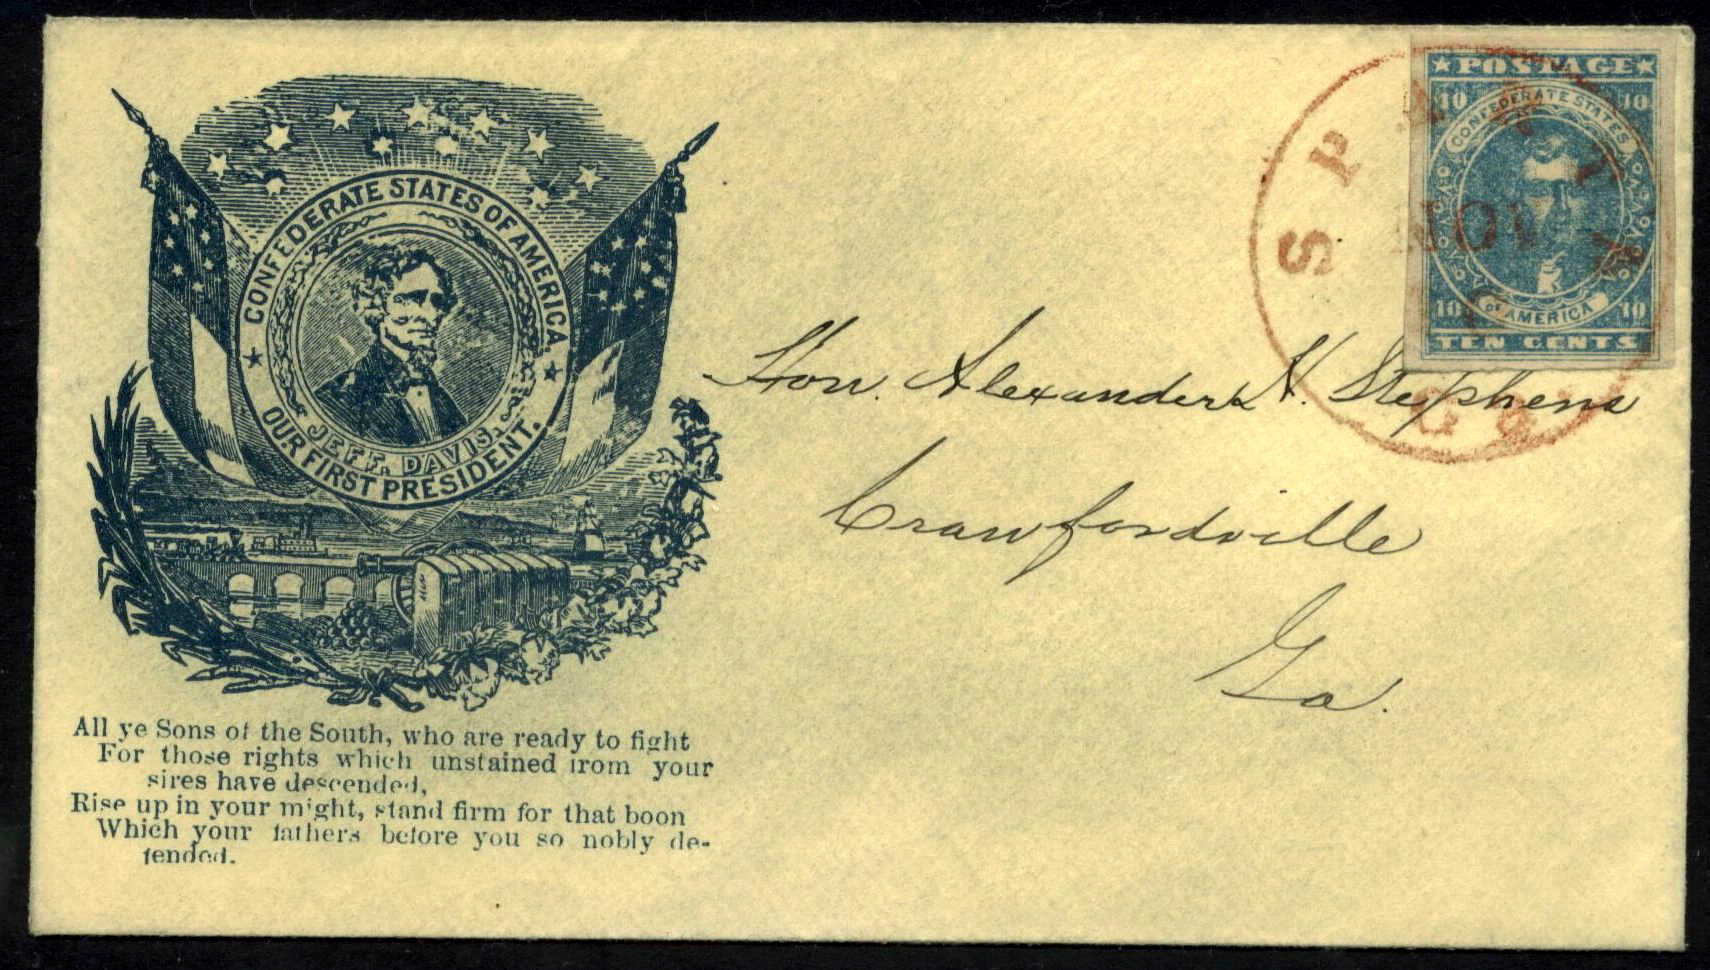 CONFEDERATE STATES OF AMERICA.
JEFF. DAVIS.
OUR FIRST PRESIDENT.
All ye Sons of the South, who are ready to fight
For those rights which unstained from your
sires have descended,
Rise up in your might, stand firm for that boon
Which your fathers before you so nobly de-
fended.
POSTAGE
10 10
CONFEDERATE STATES
OF AMERICA
10 10
TEN CENTS
SPARTA
NOV
Ga
Hon. Alexander H. Stephens
Crawfordville
Ga.